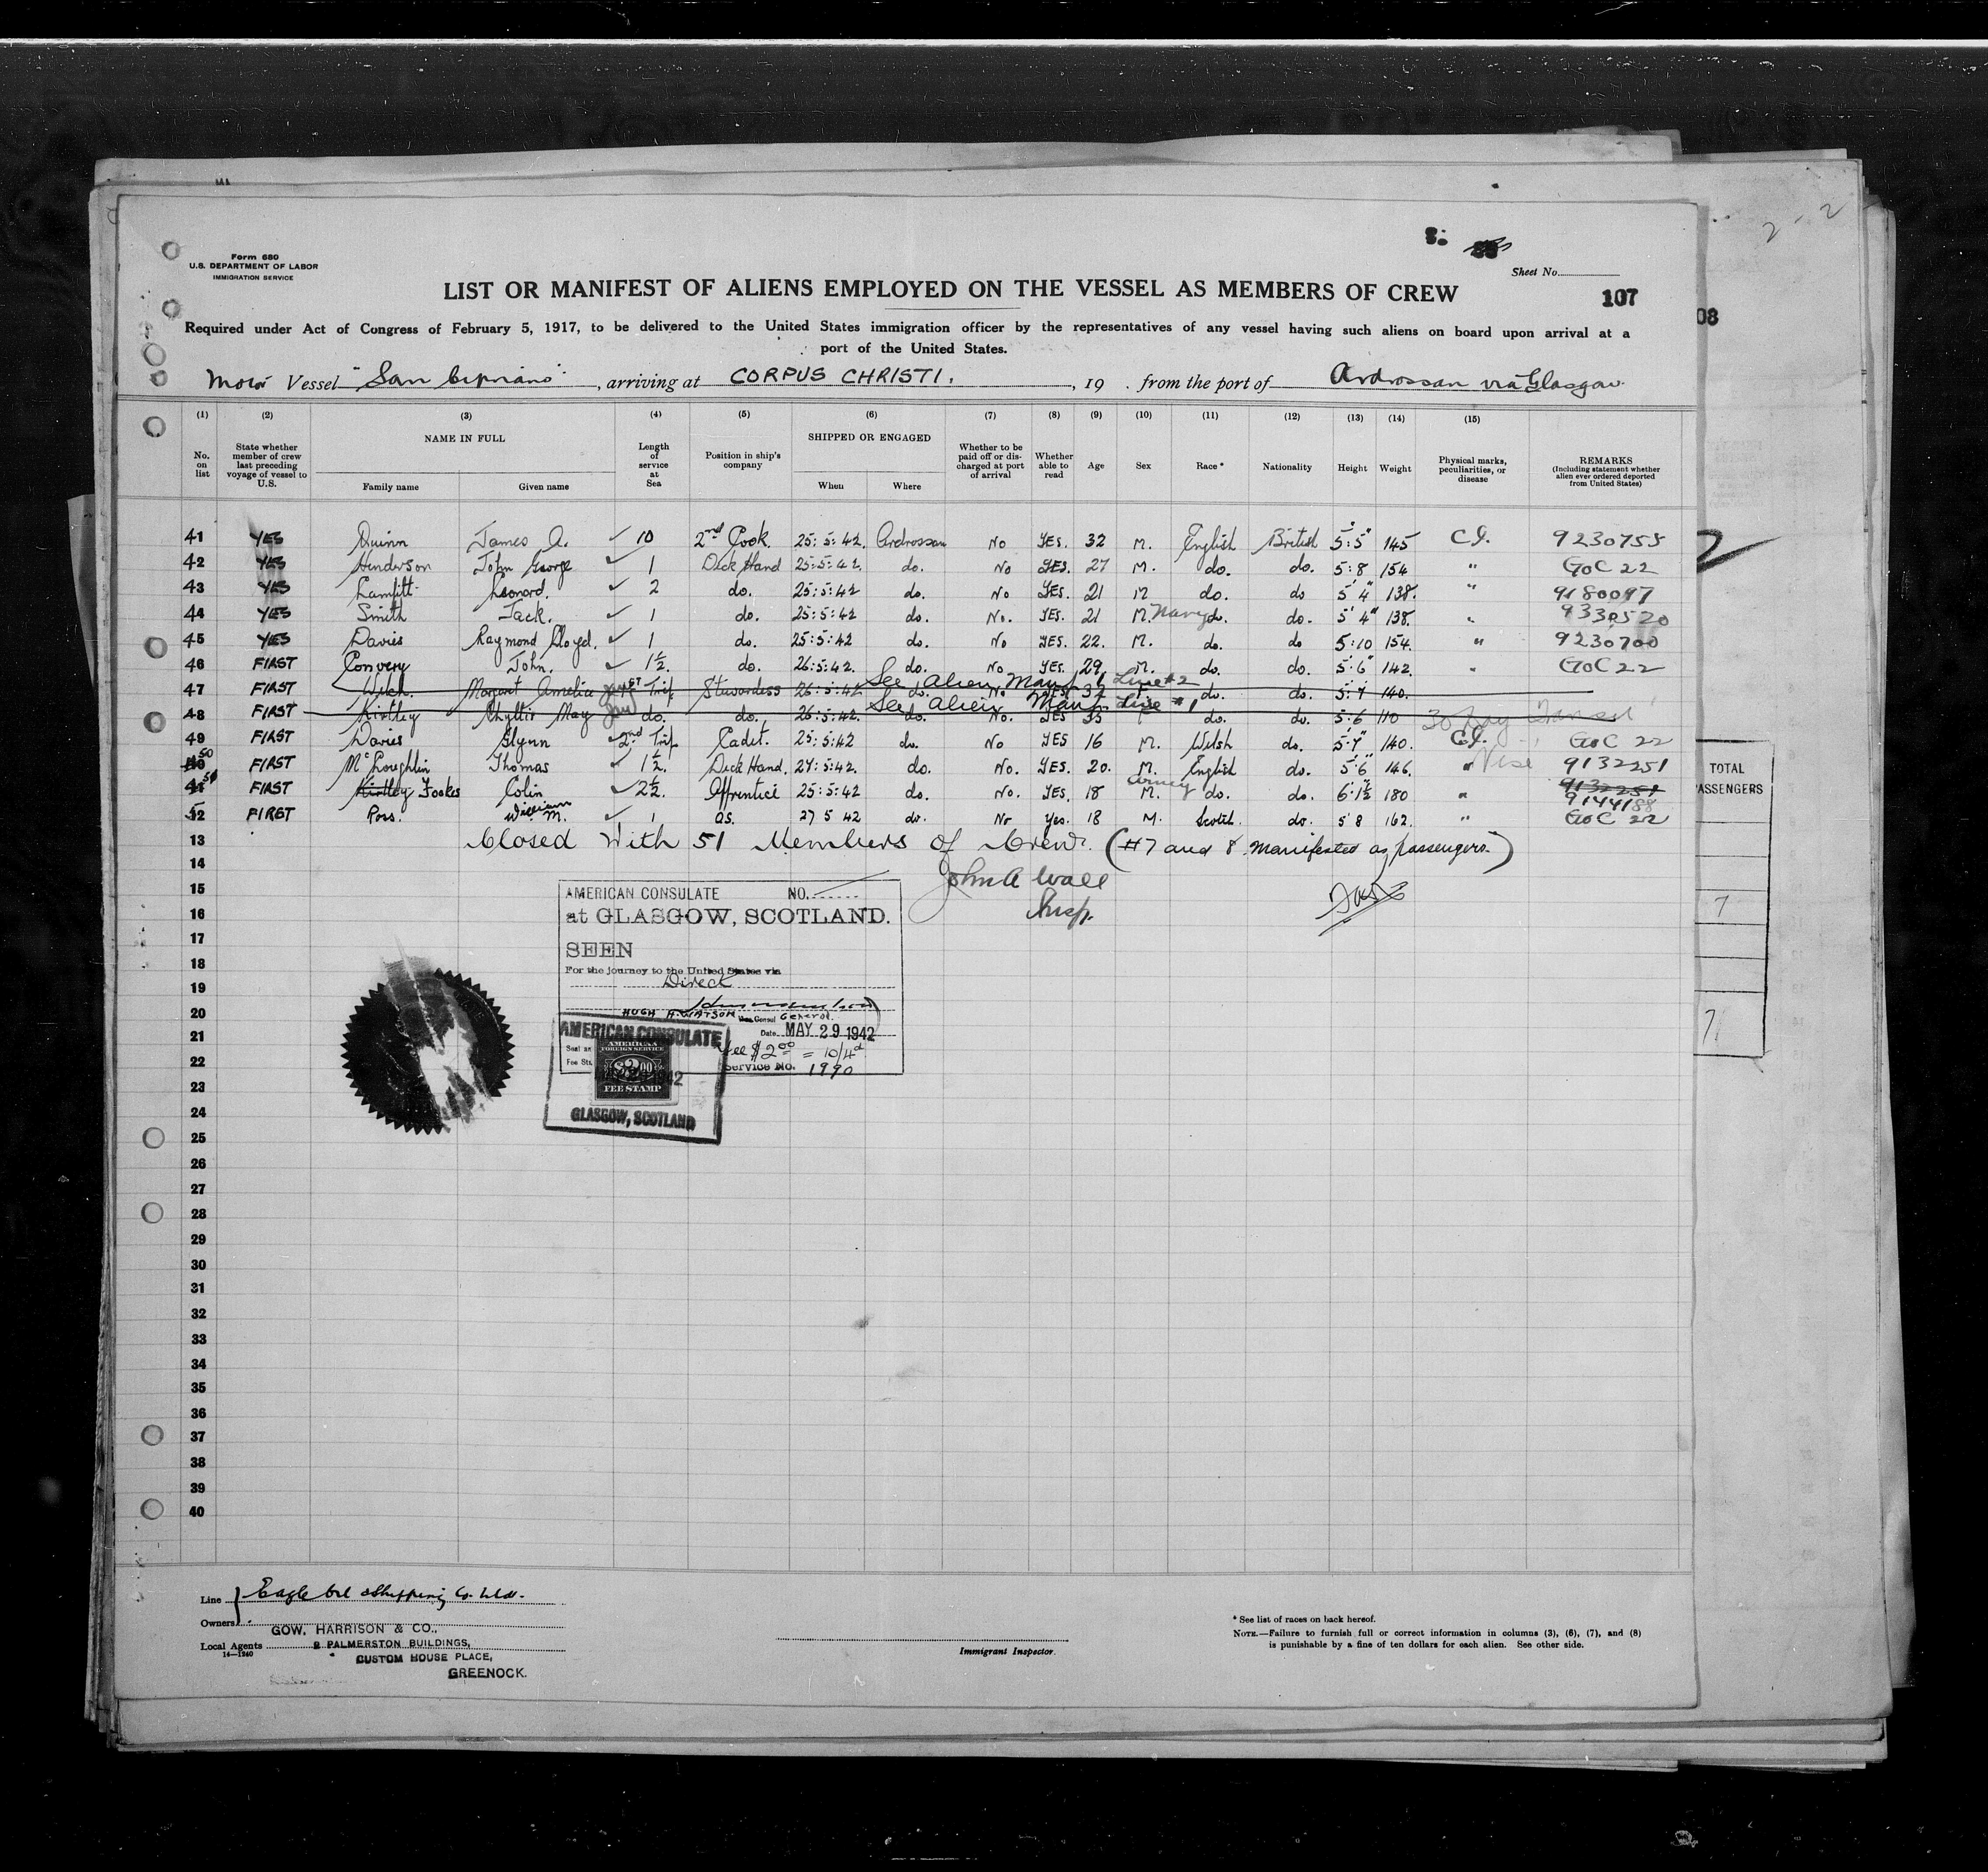 2 - 2
Form 680
U.S. DEPARTMENT OF LABOR
IMMIGRATION SERVICE
Sheet No.
LIST OR MANIFEST OF ALIENS EMPLOYED ON THE VESSEL AS MEMBERS OF CREW
107
08
Required under Act of Congress of February 5, 1917, to be delivered to the United States immigration officer by the representatives of any vessel having such aliens on board upon arrival at a
port of the United States.
Motor Vessel "San Cipriano", arriving at CORPUS CHRISTI., 19 . from the port of Ardrossan via Glasgow.
(1) (2) (3) (4) (5) (6) (7) (8) (9) (10) (11) (12) (13) (14) (15)
No. on list
State whether member of crew last preceding voyage of vessel to U.S.
NAME IN FULL
Family name Given name
Length of service at Sea
Position in ship's company
SHIPPED OR ENGAGED
When Where
Whether to be paid off or discharged at port of arrival
Whether able to read
Age
Sex
Race*
Nationality
Height
Weight
Physical marks, peculiarities, or disease
REMARKS
(Including statement whether alien ever ordered deported from United States)
41 YES Quinn James A. ✓ 10 2nd Cook. 25:5:42. Ardrossan No YES. 32 M. English British 5:5" 145 C.I. 9230755
42 YES Henderson John George ✓ 1 Deck Hand 25:5:42. do. No YES. 27 M. do. do. 5:8 154 " GOC 22
43 YES Lamfitt Leonard. ✓ 2 do. 25:5:42 do. No YES. 21 M do. do 5'4" 138. " 9180097
44 YES Smith Jack. ✓ 1 do. 25:5:42 do. No. YES. 21 M. Navy do. do. 5'4" 138. " 9330520
45 YES Davies Raymond Lloyd. ✓ 1 do. 25:5:42 do. No YES. 22. M. do. do 5:10 154. " 9230700
46 FIRST Convery John. ✓ 1½. do. 26:5:42. do. No YES. 29 M. do. do. 5:6" 142. " GOC 22
See Alien Man. Line #2
47 FIRST Welch. Margaret Amelia 1st Trip Stewardess 26:5:42 do. No YES 32 F. do. do. 5:7 140.
See Alien Man. Line #1
48 FIRST Kirtley Phyllis May do. do. 26:5:42. do. No. YES 35 F do. do. 5:6 110 30 Day Transit
49 FIRST Davies Glynn ✓ 2nd Trip Cadet. 25:5:42 do. No YES 16 M. Welsh do. 5:7" 140. C.I. GOC 22
50 FIRST McLoughlin Thomas ✓ 1½. Deck Hand. 27:5:42. do. No. YES. 20. M. English do. 5:6 146. " 9132251
51 FIRST Kirtley Fookes Colin ✓ 2½. Apprentice 25:5:42 do. No. YES. 18 M. Army do. do. 6:1½ 180 " 9132251 9144188
52 FIRST Ross. William M. ✓ 1 OS. 27 5 42 do. No Yes. 18 M. Scotch. do. 5 8 162. " GOC 22
13 Closed With 51 Members of Crew. (#7 and 8 manifested as passengers.)
14
John A Wall
Insp.
15
16
17
18
19
20
21
22
23
24
25
26
27
28
29
30
31
32
33
34
35
36
37
38
39
40
AMERICAN CONSULATE NO.
at GLASGOW, SCOTLAND.
SEEN
For the journey to the United States via
Direct
HUGH H. WATSON Consul General.
Date MAY 29 1942
Fee $2.00 = 10/4d
Service No. 1990
AMERICAN CONSULATE
AMERICAN
FOREIGN SERVICE
$2.00
FEE STAMP
GLASGOW, SCOTLAND
TOTAL
PASSENGERS
7
Line Eagle Oil Shipping Co. Ltd.
Owners
Local Agents GOW, HARRISON & CO.,
PALMERSTON BUILDINGS,
CUSTOM HOUSE PLACE,
GREENOCK.
14—1240
Immigrant Inspector.
* See list of races on back hereof.
NOTE.—Failure to furnish full or correct information in columns (3), (6), (7), and (8)
is punishable by a fine of ten dollars for each alien. See other side.